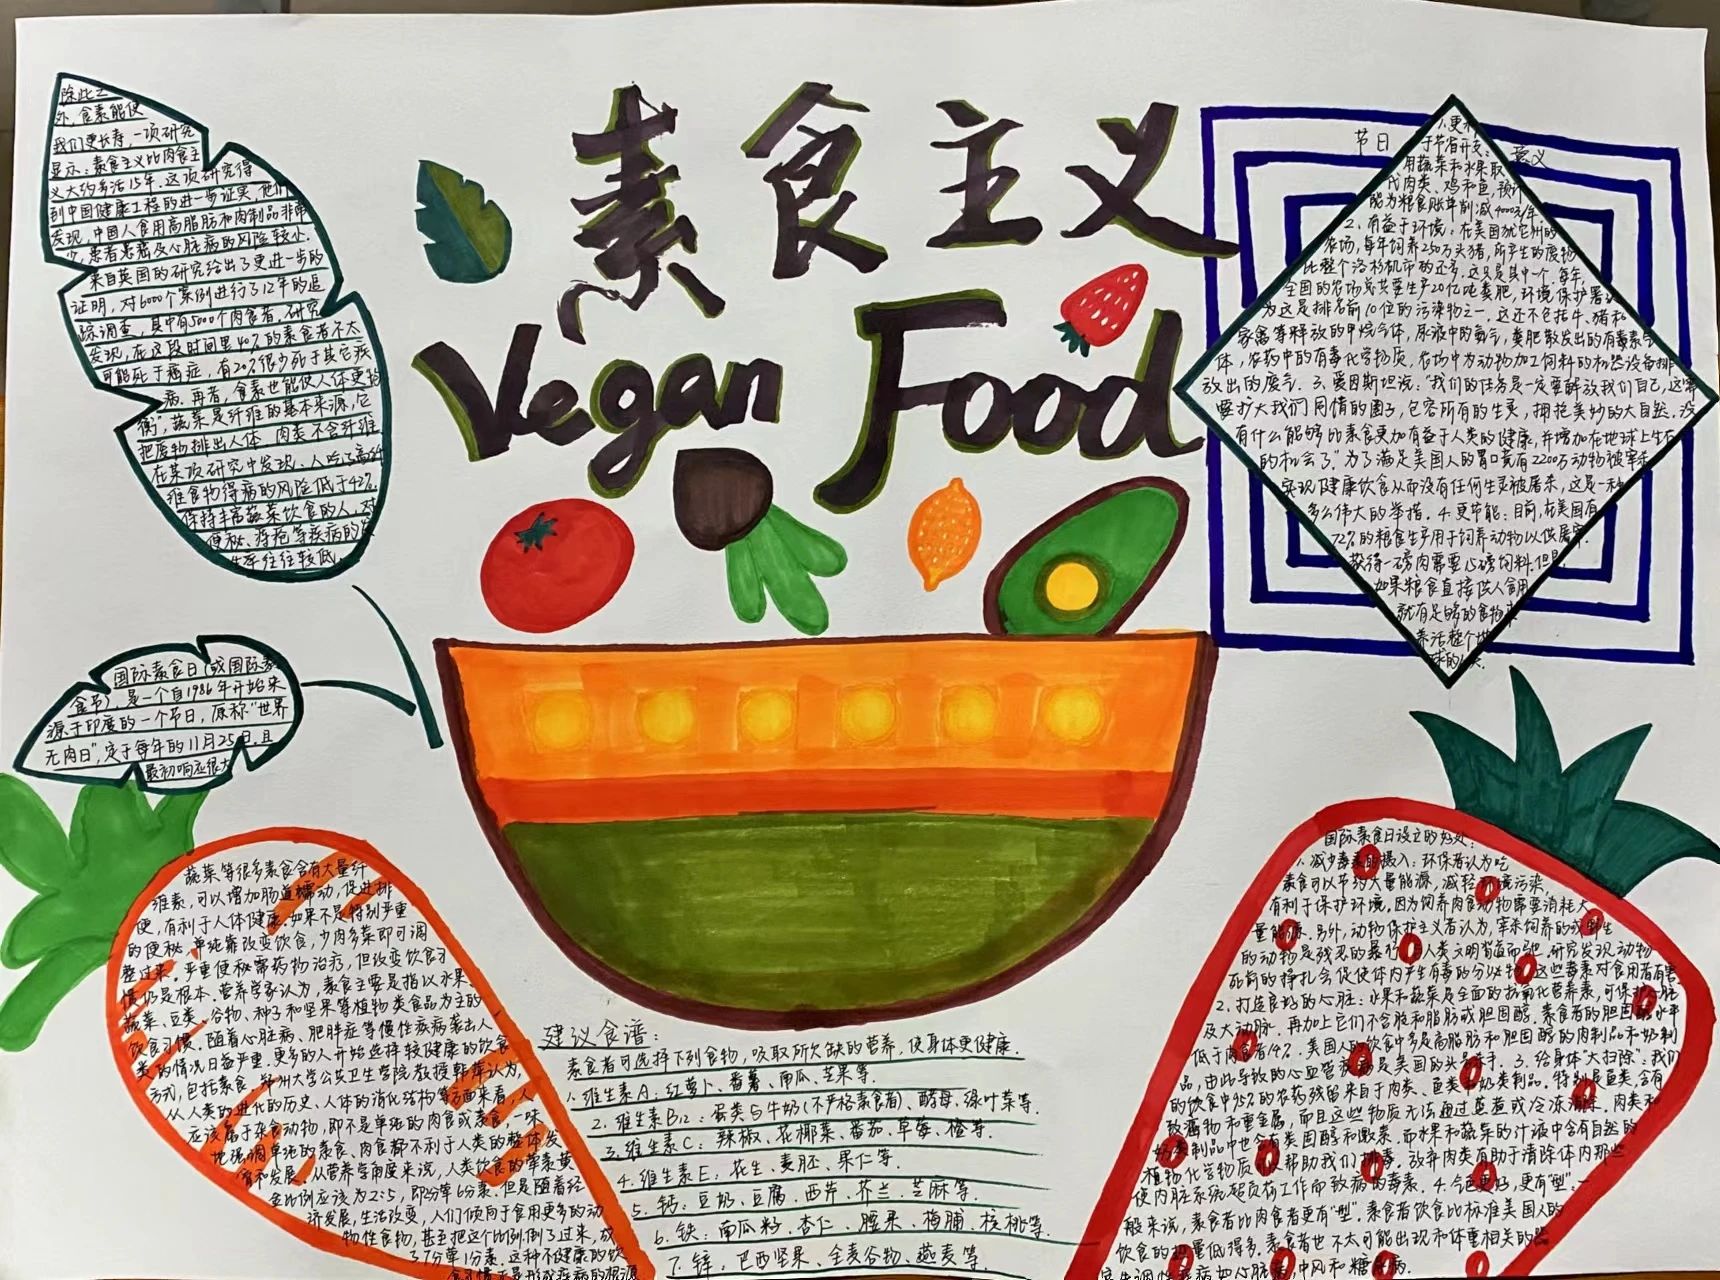 素食主义
Vegan Food
除此之
外,食素能使
我们更长寿,一项研究
显示:素食主义比肉食主
义大约多活15年。这项研究得
到中国健康工程的进一步证实,他们
发现,中国人食用高脂肪和肉制品非常
少,患者患癌及心脏病的风险较小.
来自英国的研究给出了更进一步的
证明,对6000个案例进行了12年的追
踪调查,其中有5000个肉食者,研究
发现,在这段时间里40%的素食者不太
可能死于癌症,有20%很少死于其它疾
病.再者,食素也能使人体更均
衡",蔬菜是纤维的基本来源,它
把废物排出人体.肉类不含纤维
在某项研究中发现,人吃了高纤
维食物得病的风险低于42%.
保持丰富蔬菜饮食的人,对
便秘、痔疮等疾病的发
生率往往较低.
国际素食日(或国际素
食节),是一个自1986年开始来
源于印度的一个节日,原称"世界
无肉日",定于每年的11月25日.且
最初响应很大
节日 意义
1.更利
于节省开支:
用蔬菜和水果取
代肉类、鸡和鱼,预计
能为粮食账单削减4000/年.
2.有益于环境:在美国犹它州的
农场,每年饲养250万头猪,所产生的废物
比整个洛杉矶市的还多,这只是其中一个,每年,
全国的农场总共要生产20亿吨粪肥,环境保护署认
为这是排名前10位的污染物之一.这还不包括牛、猪和
家禽等释放的甲烷气体,尿液中的氨气,粪肥散发出的有毒素气
体,农药中的有毒化学物质,农场中为动物加工饲料的机器设备排
放出的废气.3.爱因斯坦说:"我们的任务是一定要解放我们自己,这需
要扩大我们同情的圈子,包容所有的生灵,拥抱美妙的大自然.没
有什么能够比素食更加有益于人类的健康,并增加在地球上生存
的机会了."为了满足美国人的胃口竟有2200万动物被宰杀
实现健康饮食从而没有任何生灵被屠杀,这是一种
多么伟大的举措.4.更节能:目前,在美国有
72%的粮食生产用于饲养动物以供屠宰.
获得一磅肉需要15磅饲料.但是
如果粮食直接供人食用
就有足够的食物来
养活整个地
球的人类.
蔬菜等很多素食含有大量纤
维素,可以增加肠道蠕动,促进排
便,有利于人体健康.如果不是特别严重
的便秘,单纯靠改变饮食,少肉多菜即可调
整过来.严重便秘需药物治疗,但改变饮食习
惯仍是根本.营养学家认为,素食主要是指以水果、
蔬菜、豆类、谷物、种子和坚果等植物类食品为主的
饮食习惯.随着心脏病、肥胖症等慢性疾病袭出人
类的情况日益严重.更多的人开始选择较健康的饮食
方式,包括素食.郑州大学公共卫生学院教授韩萍认为,
从人类的进化的历史、人体的消化结构等方面来看,人
应该属于杂食动物,即不是单纯的肉食或素食,一味
地强调单纯的素食、肉食都不利于人类的整体发
育和发展.从营养学角度来说,人类饮食的荤素黄
金比例应该为2:5,即2分荤6分素.但是随着经
济发展,生活改变,人们倾向于食用更多的动
物性食物,甚至把这个比例倒了过来,成
了7分荤1分素.这种不健康的饮
食习惯正是形成疾病的根源
建议食谱:
素食者可选择下列食物,吸取所欠缺的营养,使身体更健康.
1.维生素A:红萝卜、番薯、南瓜、芒果等.
2.维生素B12:蛋类与牛奶(不严格素食者)、酵母、绿叶菜等.
3.维生素C:辣椒、花椰菜、番茄、草莓、橙等.
4.维生素E:花生、麦胚、果仁等.
5.钙:豆奶、豆腐、西芹、芥兰、芝麻等.
6.铁:南瓜籽、杏仁、腰果、梅脯、核桃等.
7.锌:巴西坚果、全麦谷物、燕麦等.
国际素食日设立的好处:
1.减少毒素的摄入:环保者认为吃
素食可以节约大量能源,减轻环境污染,
有利于保护环境,因为饲养肉食动物需要消耗大
量能源.另外,动物保护主义者认为,宰杀饲养的或野生
的动物是残忍的暴行,与人类文明背道而驰.研究发现动物
死前的挣扎会促使体内产生有毒的分泌物,这些毒素对食用者有害
2.打造良好的心脏:水果和蔬菜是全面的抗氧化营养素,可保护心脏
及大动脉.再加上它们不含胞和脂肪或胆固醇,素食者的胆固醇水平
低于肉食者14%.美国人的饮食中多是高脂肪和胆固醇的肉制品和奶制
品,由此导致的心血管疾病是美国的头号杀手.3.给身体"大扫除":我们
的饮食中95%的农药残留来自于肉类、鱼类和奶类制品.特别是鱼类,含有
致癌物和重金属,而且这些物质无法通过蒸煮或冷冻消除.肉类和
奶类制品中也含有类固醇和激素.而水果和蔬菜的汁液中含有自然的
植物化学物质可以帮助我们排毒.放弃肉类有助于清除体内那些
使内脏系统超负荷工作而致病的毒素.4.气色更好,更有"型":一
般来说,素食者比肉食者更有"型".素食者饮食比标准美国人的
饮食的热量低得多.素食者也不太可能出现和体重相关的
病,中风和糖尿病.